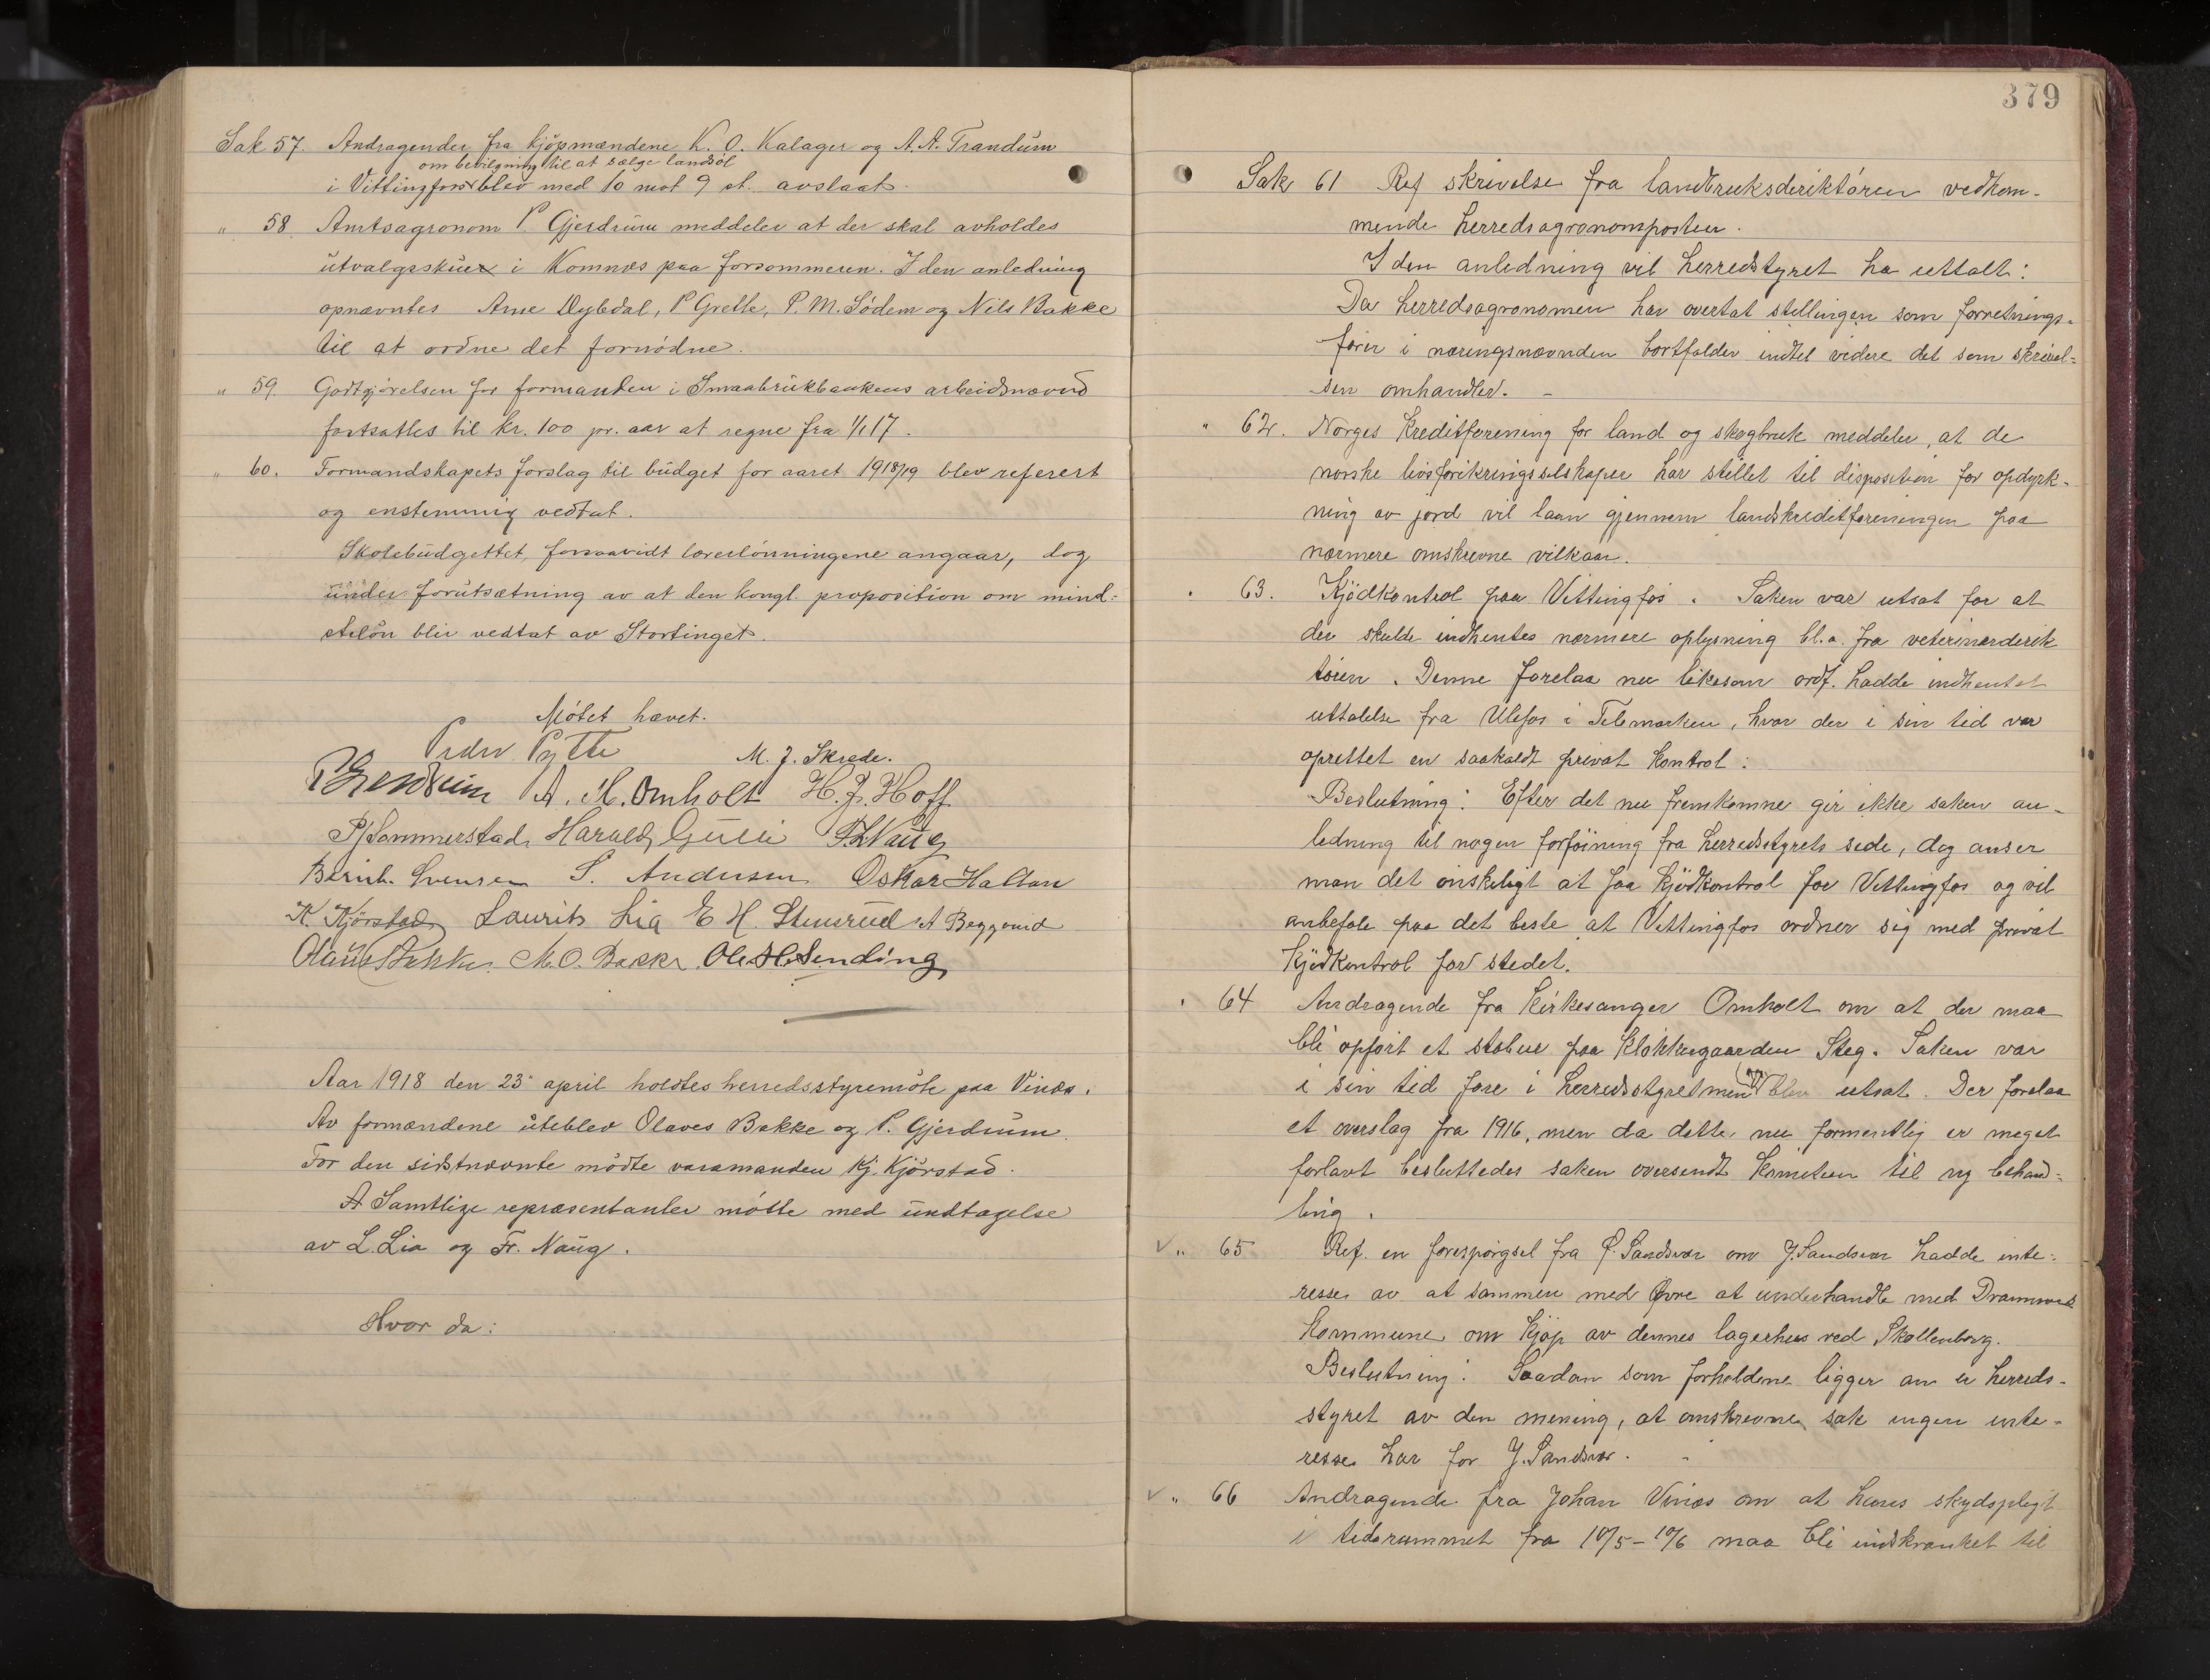 Sak 57. Andragender fra kjöpmændene K. O. Kalager og A. A. Trandum
om bevilgning til at sælge landsöl
i Vittingfoss blev med 10 mot 9 st. avslaat.
„ 58. Amtsagronom P. Gjerdrum meddeler at der skal avholdes
utvalgsskue i Komnæs paa forsommeren. I den anledning
opnævntes Arne Dybdal, P Grette, P. M. Södem og Nils Bakke
til at ordne det fornödne.
„ 59. Godtgjörelsen for formanden i Smaabrukbankens arbeidsnævnd
fastsattes til kr. 100 pr. aar at regne fra 1/1 17.
„ 60. Formandskapets forslag til budget for aaret 1918/19 blev referert
og enstemmig vedtat.
Skolebudgettet, forsaavidt lærerlönningene angaar, dog
under forutsætning av at den kongl. proposition om mind-
stelön blir vedtat av Stortinget.
Mötet hævet.
Peder Pytte M. J. Skrede.
P Gjerdrum A. M. Omholt H. J. Hoff
P J Sommerstad, Harald Gulli Fr Naug
Bernh. Svensen S. Andersen Oskar Haltan
K. Kjörstad Laurits Lia E H. Stensrud A Beggerud
Olaus Bakke. M. O. Bakke. Ole H. Sending
Aar 1918 den 23 april holdtes herredsstyremöte paa Vinæs.
Av formændene uteblev Olaves Bakke og P. Gjerdrum.
For den sidstnævnte mödte varamanden Kj. Kjörstad.
Samtlige repræsentanter mötte med undtagelse
av L. Lia og Fr. Naug.
Hvor da:
379
Sak 61 Ref skrivelse fra landbruksderiktören vedkom-
mende herredsagronomposten.
I den anledning vil herredstyret ha uttalt:
Da herredsagronomen har overtat stillingen som forretnings-
förer i næringsnævnden bortfalder indtil videre det som skrivel-
sen omhandler. -
„ 62. Norges Kreditforening for land og skogbruk meddeler, at de
norske livsforikringsselskaper har stillet til disposition for opdyrk-
ning av jord vil laan gjennem landskreditforeningen paa
nærmere omskrevne vilkaar.
„ 63. Kjödkontrol paa Vittingfos. Saken var utsat for at
der skulde indhentes nærmere oplysning bl.a. fra veterinærderik
tören. Denne forelaa nu likesom ordf. hadde indhentet
uttalelse fra Ulefos i Telemarken, hvor der i sin tid var
oprettet en saakaldt privat kontrol:
Beslutning: Efter det nu fremkomne gir ikke saken an-
ledning til nogen forföining fra herredsstyrets side, dog anser
man det önskeligt at faa kjödkontrol for Vittingfos og vil
anbefale paa det beste at Vittingfos ordner sig med privat
kjödkontrol for stedet.
„ 64 Andragende fra Kirkesanger Omholt om at der maa
bli opfört et stabur paa Klokkergaarden Steg. Saken var
i sin tid fore i herredsstyret men blev utsat. Der forelaa
et overslag fra 1916, men da dette, nu formentlig er meget
forlavt besluttedes saken oversendt komiteen til ny behand-
ling.
„ 65 Ref. en forespörgsel fra Ö. Sandsvær om Y. Sandsvær hadde inte-
resse av at sammen med Övre at underhandle med Drammens
kommune om kjöp av dennes lagerhus ved Skollenborg.
Beslutning: Saadan som forholdene ligger an er herreds-
styret av den mening, at omskrevne sak ingen inte-
resse har for Y. Sandsvær. -
„ 66 Andragende fra Johan Vinæs om at hans skydspligt
i tidsrummet fra 10/5 - 10/6 maa bli indskrænket til